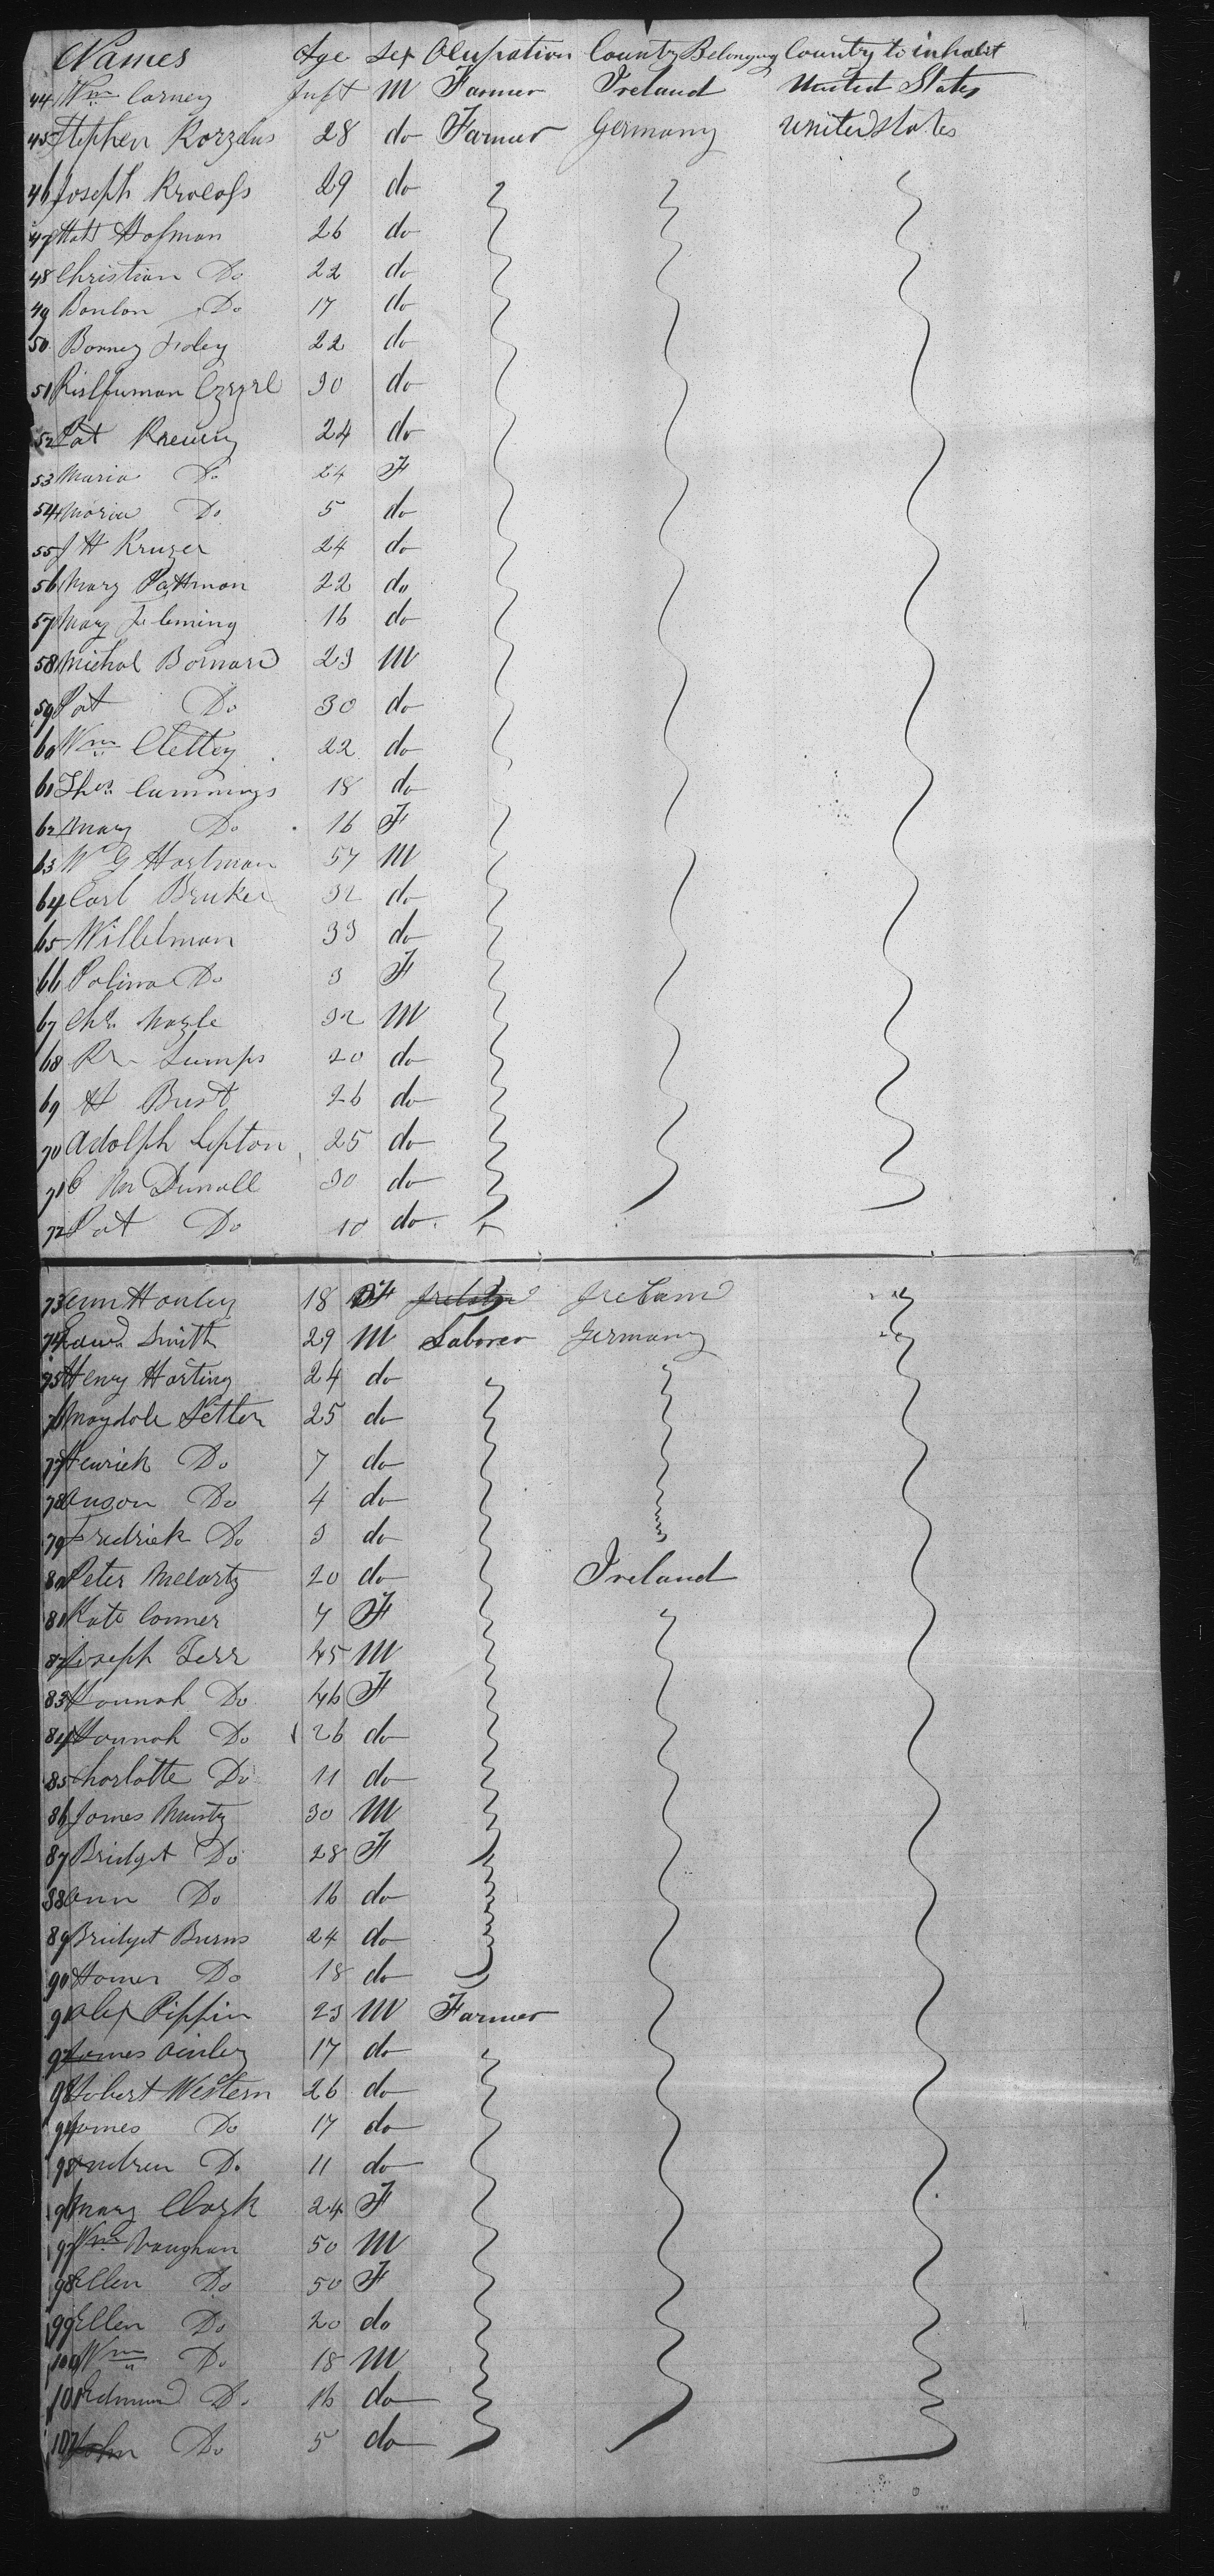 Names Age Sex Ocupation Country Belonging Country to inhabit
44 Wm Carney Inft M Farmer Ireland United States
45 Stephen Korzelus 28 do Farmer Germany United States
46 Joseph 29 do
47 Hofman 26 do
48 Christian Do 22 do
49 Do 17 do
50 Borney Foley 22 do
51 30 do
52 Pat 24 do
53 Maria Do 24 F
54 Maria Do 5 do
55 J H Kruger 24 do
56 Mary Pattman 22 do
57 Mary Fleming 16 do
58 Michal Bornard 23 M
59 Pat Do 30 do
60 Wm Clettey 22 do
61 Thos Cummings 18 do
62 Mary Do 16 F
63 W G Hartman 57 M
64 Carl Bruker 32 do
65 Willelman 33 do
66 Polina Do 3 F
67 Chs Nagle 32 M
68 Lumps 20 do
69 H Bust 26 do
70 Adolph Lipton 25 do
71 30 do
72 Pat Do 10 do
73 Ann Hanley 18 F Ireland
74 Edwd Smith 29 M Laborer Germany
75 Henry Harting 24 do
76 Magdale Setter 25 do
77 Henrich Do 7 do
78 Do 4 do
79 Fredrick Do 3 do
80 Peter McCarty 20 do Ireland
81 Kate Conner 7 F
82 Joseph Terr 45 M
83 Hannah Do 46 F
84 Hannah Do 26 do
85 Charlotte Do 11 do
86 James Munty 30 M
87 Bridget Do 28 F
88 Ann Do 16 do
89 Bridget Burns 24 do
90 Do 18 do
91 Alex Pippin 23 M Farmer
92 James 17 do
93 Robert Western 26 do
94 James Do 17 do
95 Andrew Do 11 do
96 Mary Clark 24 F
97 Wm Vaughan 50 M
98 Ellen Do 50 F
99 Ellen Do 20 do
100 Wm Do 18 M
101 Edmund Do 16 do
102 John Do 5 do